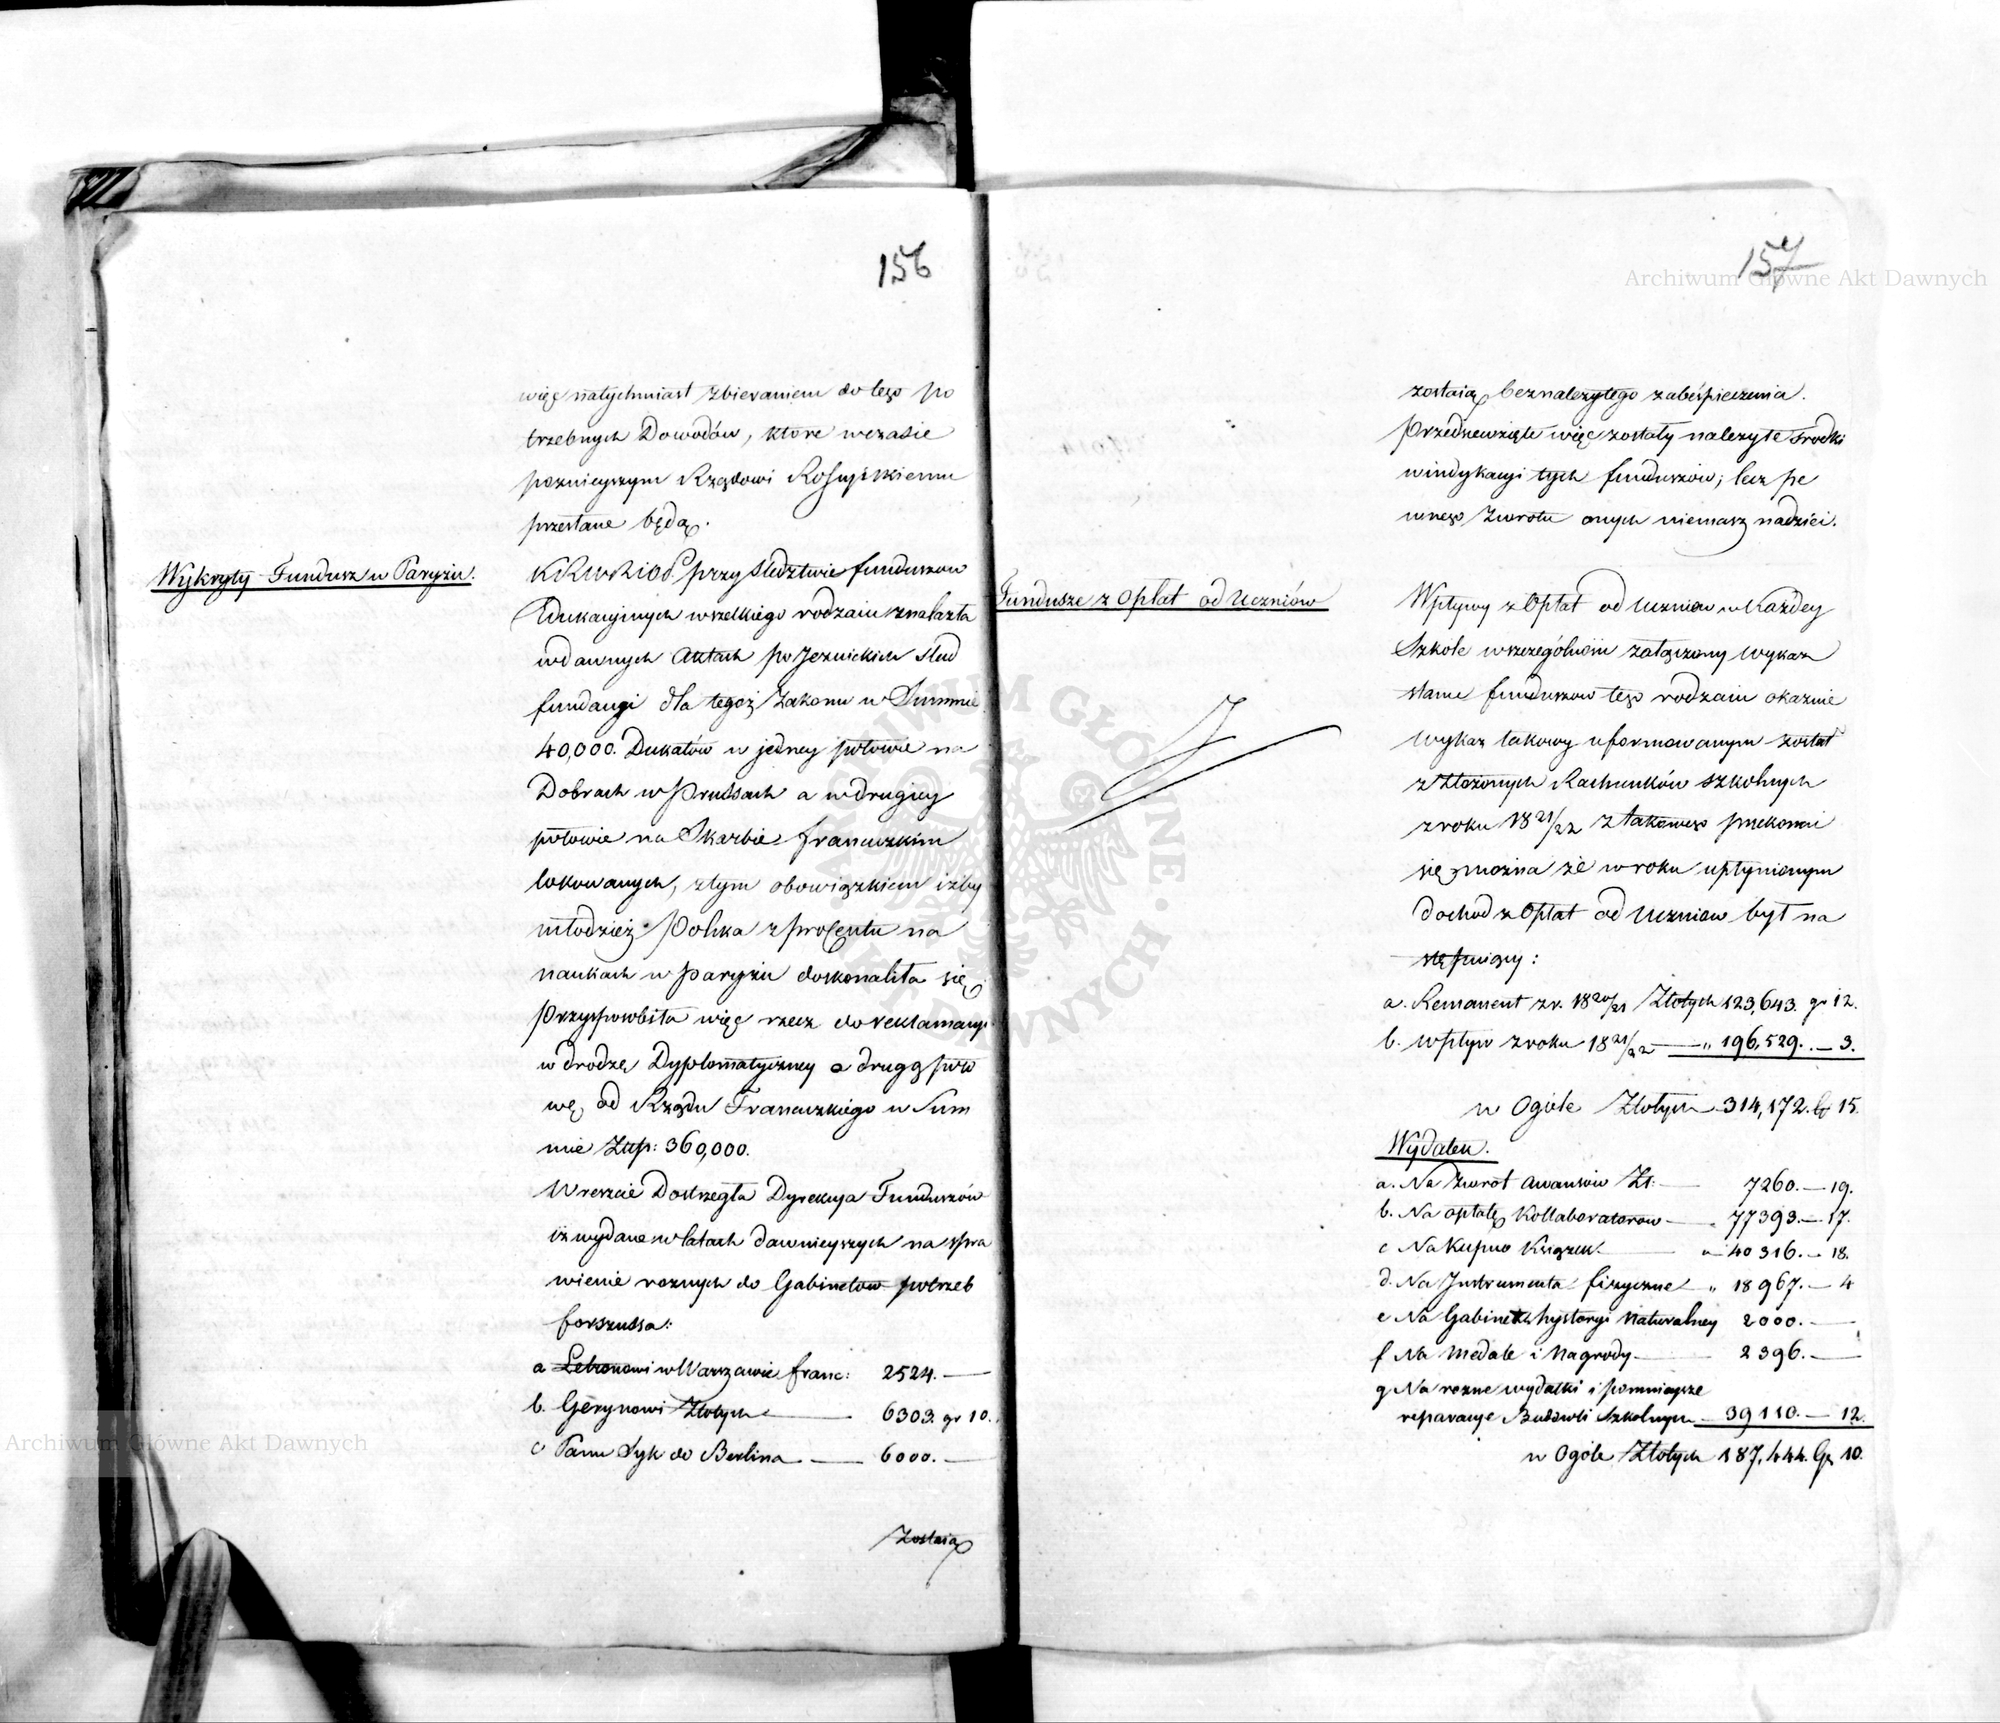 156
więc natychmiast zbieraniem do tego po
trzebnych Dowodów, ktore w czasie
poznieyszym Rządowi Rossyiskiemu
przesłane będą.
Wykryty Fundusz w Paryżu.
przy śledztwie funduszow
Edukacyinych wszelkiego rodzaiu znalazła
w dawnych Aktach po Jezuickich slad
fundacyi dla tegoż Zakonu w Summie
40,000. Dukatów w jedney połowie na
Dobrach w Prussach a w drugiey
połowie na Skarbie francuzkim
lokowanych, z tym obowiązkiem iżby
młodzież Polska z procentu na
naukach w Paryżu doskonaliła się.
Przysposobiła więc rzecz do reklamacyi
w drodze Dyplomatyczney o drugą poło
wę od Rządu Francuzkiego w Sum
mie Złłp: 360,000.
Wreszcie Dostrzegła Dyrekcya Funduszów
iż wydane w latach dawnieyszych na spra
wienie roznych do Gabinetow potrzeb
forszussa:
a Lebonowi w Warszawie franc: 2524. —
b. Gerynowi Złotych — 6303. gr 10.
c Panu Syk do Berlina — 6000. —
Zostaią
157
zostaią bez należytego zabeśpieczenia.
Przedsiewzięte więc zostały należyte srodki
windykacyi tych funduszów; lecz pe
wnego zwrotu onych niemasz nadziei.
Fundusze z Opłat od Uczniów
Wpływy z Opłat od Uczniow w każdey
Szkole w szczególności załączony wykaz
stanu funduszow tego rodzaiu okazuie
wykaz takowy uformowanym został
z złożonych Rachunków szkolnych
z roku 18 21/22 z takowego przekonać
się można że w roku upłynionym
dochod z Opłat od Uczniow był na
stępuiący:
a. Remanent z r. 18 20/21 Złotych 123,643. gr 12.
b. wpływ z roku 18 21/22 — " 196,529. — 3.
w Ogóle Złotych 314,172. Gr 15.
Wydatek.
a. Na Zwrot Awansów Zł: — 7260. — 19.
b. Na opłatę Kollaboratorow — 77393. — 17.
c Na Kupno Książek — " 40316. — 18.
d. Na Instrumenta fizyczne " 18967. — 4
e Na Gabineta hystoryi Naturalney 2000. —
f Na Medale i Nagrody — 2396. —
g Na rozne wydatki i pomnieysze
reparacye Budowli Szkolnym — 39110. — 12.
w Ogóle Złotych 187,444. Gr 10.
Archiwum Główne Akt Dawnych
Archiwum Główne Akt Dawnych
ARCHIWUM GŁÓWNE AKT DAWNYCH